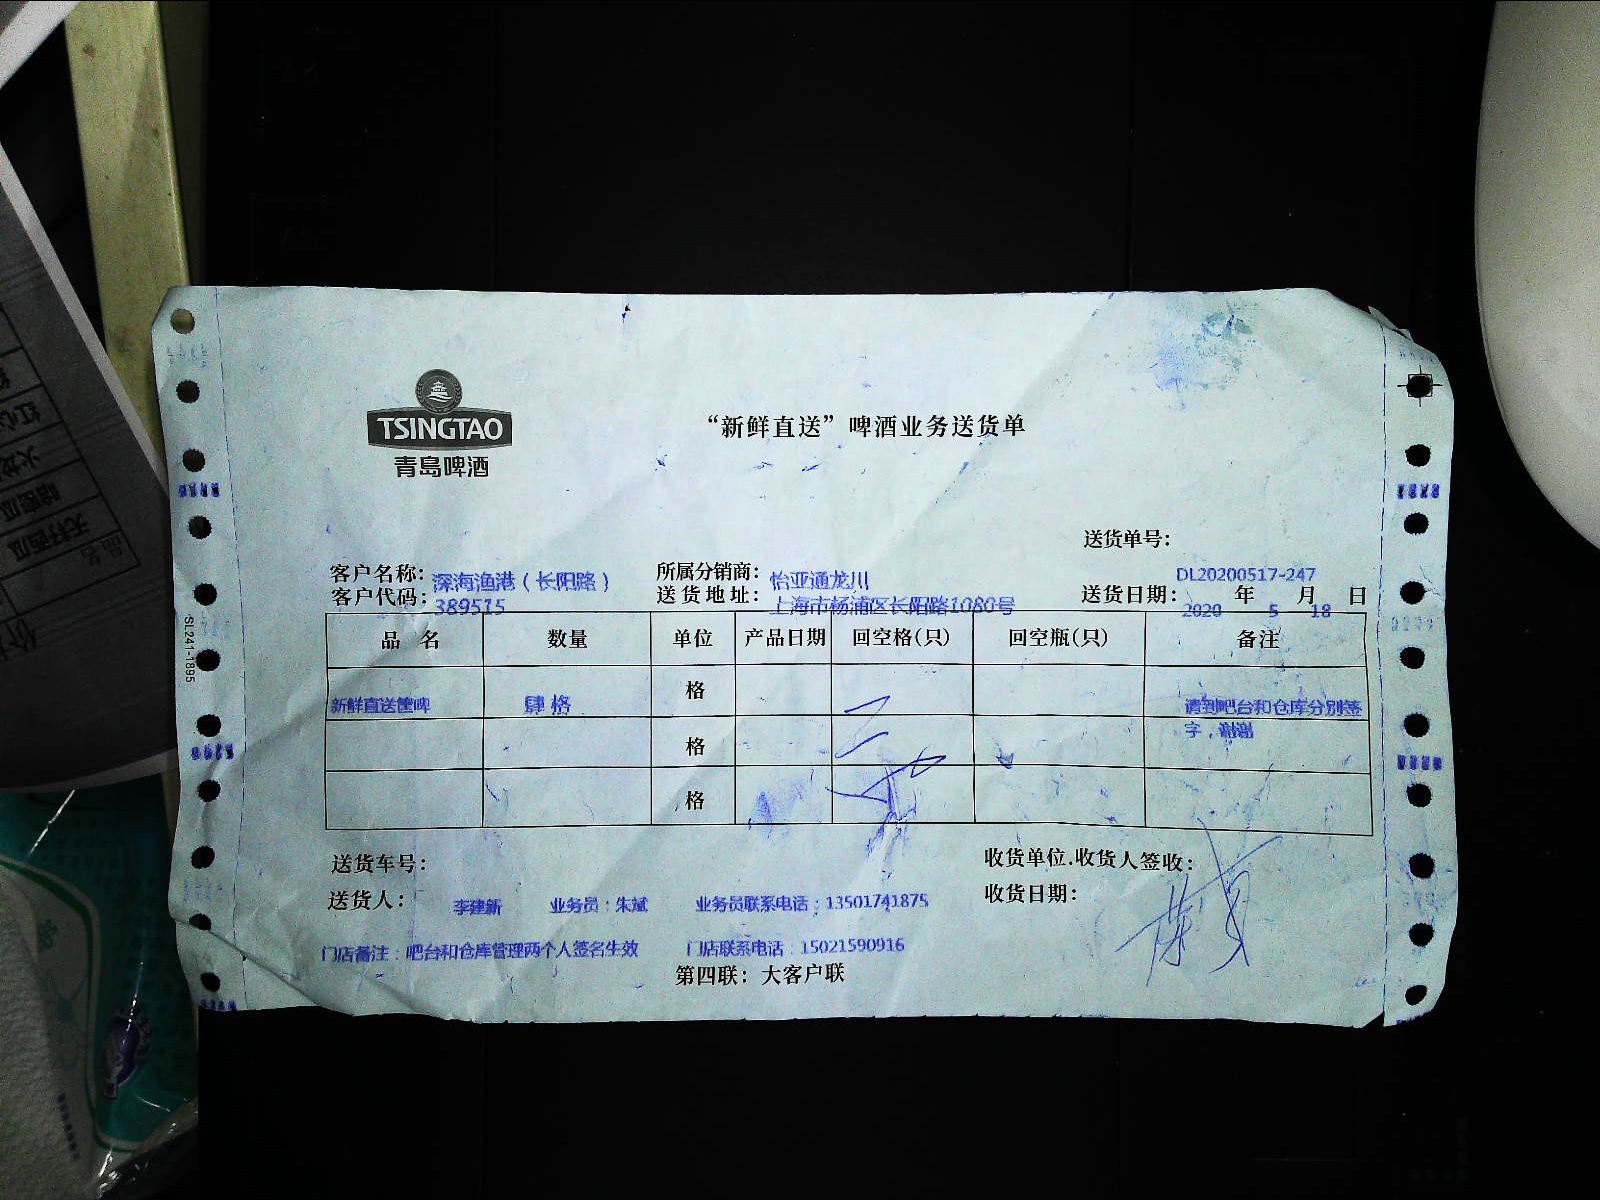 TSINGTAO
青岛啤酒
“新鲜直送”啤酒业务送货单
送货单号:
DL20200517-247
客户名称: 深海渔港（长阳路） 所属分销商: 怡亚通龙川
客户代码: 389515 送货地址: 上海市杨浦区长阳路1080号 送货日期: 2020 年 5 月 18 日
品名 数量 单位 产品日期 回空格(只) 回空瓶(只) 备注
新鲜直送筐啤 肆格 格 请到吧台和仓库分别签字，谢谢
格
格
送货车号: 收货单位.收货人签收:
送货人: 李建新 业务员：朱斌 业务员联系电话：13501741875 收货日期:
门店备注：吧台和仓库管理两个人签名生效 门店联系电话：15021590916
第四联：大客户联
SL241-1895
品名
无籽西瓜